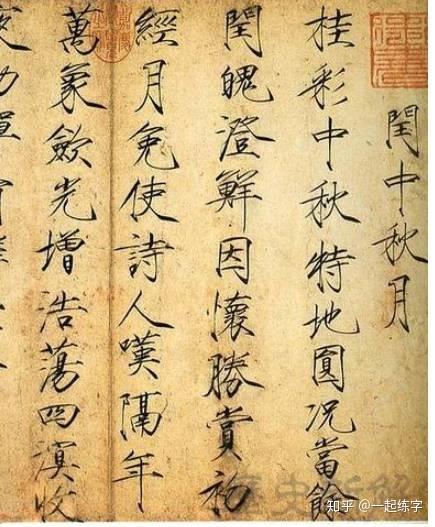 閏中秋月
桂彩中秋特地圓況當餘
閏魄澄鮮因懷勝賞初
經月免使詩人嘆隔年
萬象歛光增浩蕩四溟收
知乎 @一起练字